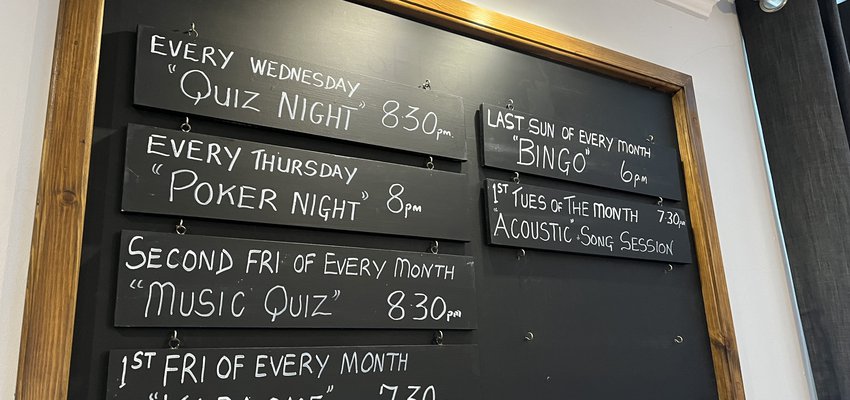 EVERY WEDNESDAY
"QUIZ NIGHT" 8·30pm.
EVERY THURSDAY
"POKER NIGHT" 8pm
SECOND FRI OF EVERY MONTH
"MUSIC QUIZ" 8·30pm
1ST FRI OF EVERY MONTH
7.30
LAST SUN OF EVERY MONTH
"BINGO" 6pm
1ST TUES OF THE MONTH 7.30pm
"ACOUSTIC" SONG SESSION